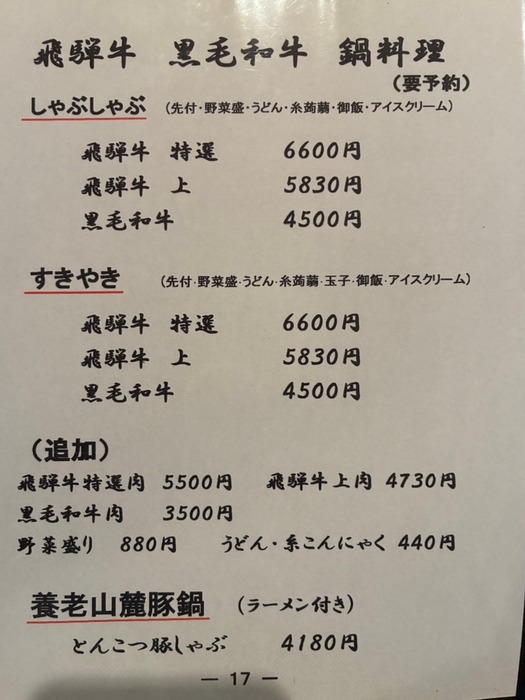 飛騨牛 黒毛和牛 鍋料理
(要予約)
しゃぶしゃぶ (先付・野菜盛・うどん・糸蒟蒻・御飯・アイスクリーム)
飛騨牛 特選 6600円
飛騨牛 上 5830円
黒毛和牛 4500円
すきやき (先付・野菜盛・うどん・糸蒟蒻・玉子・御飯・アイスクリーム)
飛騨牛 特選 6600円
飛騨牛 上 5830円
黒毛和牛 4500円
(追加)
飛騨牛特選肉 5500円 飛騨牛上肉 4730円
黒毛和牛肉 3500円
野菜盛り 880円 うどん・糸こんにゃく 440円
養老山麓豚鍋 (ラーメン付き)
とんこつ豚しゃぶ 4180円
— 17 —